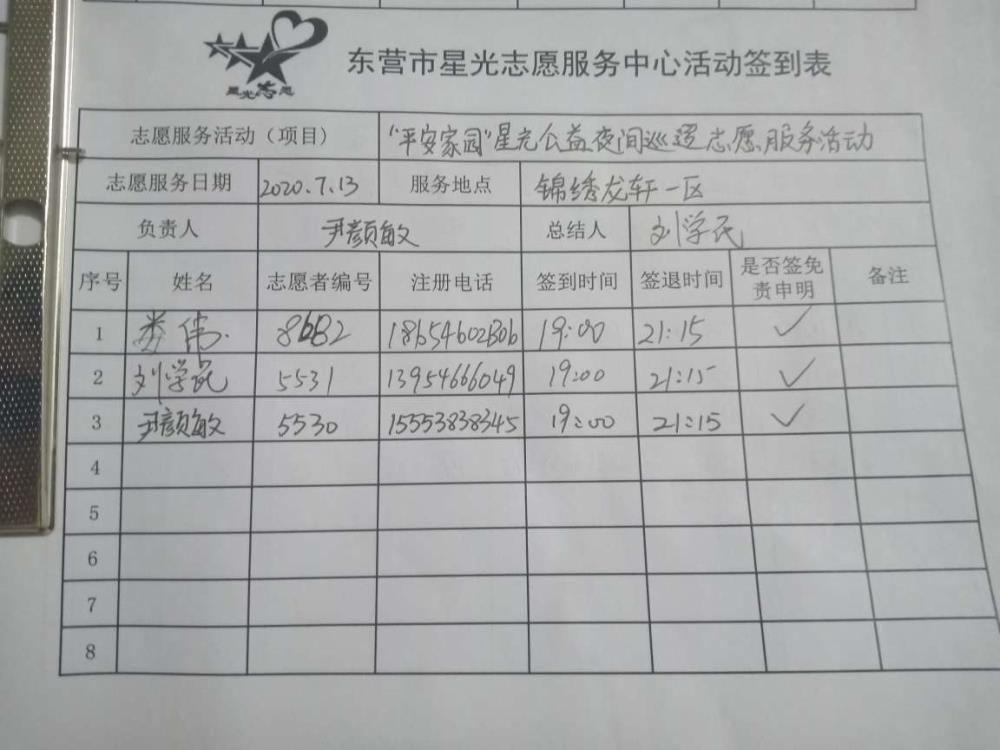 星光志愿
东营市星光志愿服务中心活动签到表
志愿服务活动（项目） “平安家园”星光公益夜间巡逻志愿服务活动
志愿服务日期 2020.7.13 服务地点 锦绣龙轩一区
负责人 尹颜敏 总结人 刘学民
序号 姓名 志愿者编号 注册电话 签到时间 签退时间 是否签免责申明 备注
1 娄伟 19:00 21:15 ✓
2 刘学民 5531 13954666049 19:00 21:15 ✓
3 尹颜敏 5530 15553838345 19:00 21:15 ✓
4
5
6
7
8